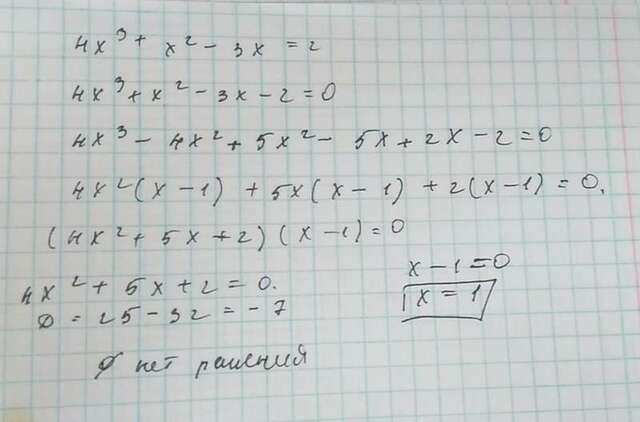 4x³ + x² - 3x = 2
4x³ + x² - 3x - 2 = 0
4x³ - 4x² + 5x² - 5x + 2x - 2 = 0
4x²(x - 1) + 5x(x - 1) + 2(x - 1) = 0.
(4x² + 5x + 2)(x - 1) = 0
4x² + 5x + 2 = 0.
D = 25 - 32 = -7
∅ нет решения
x - 1 = 0
x = 1